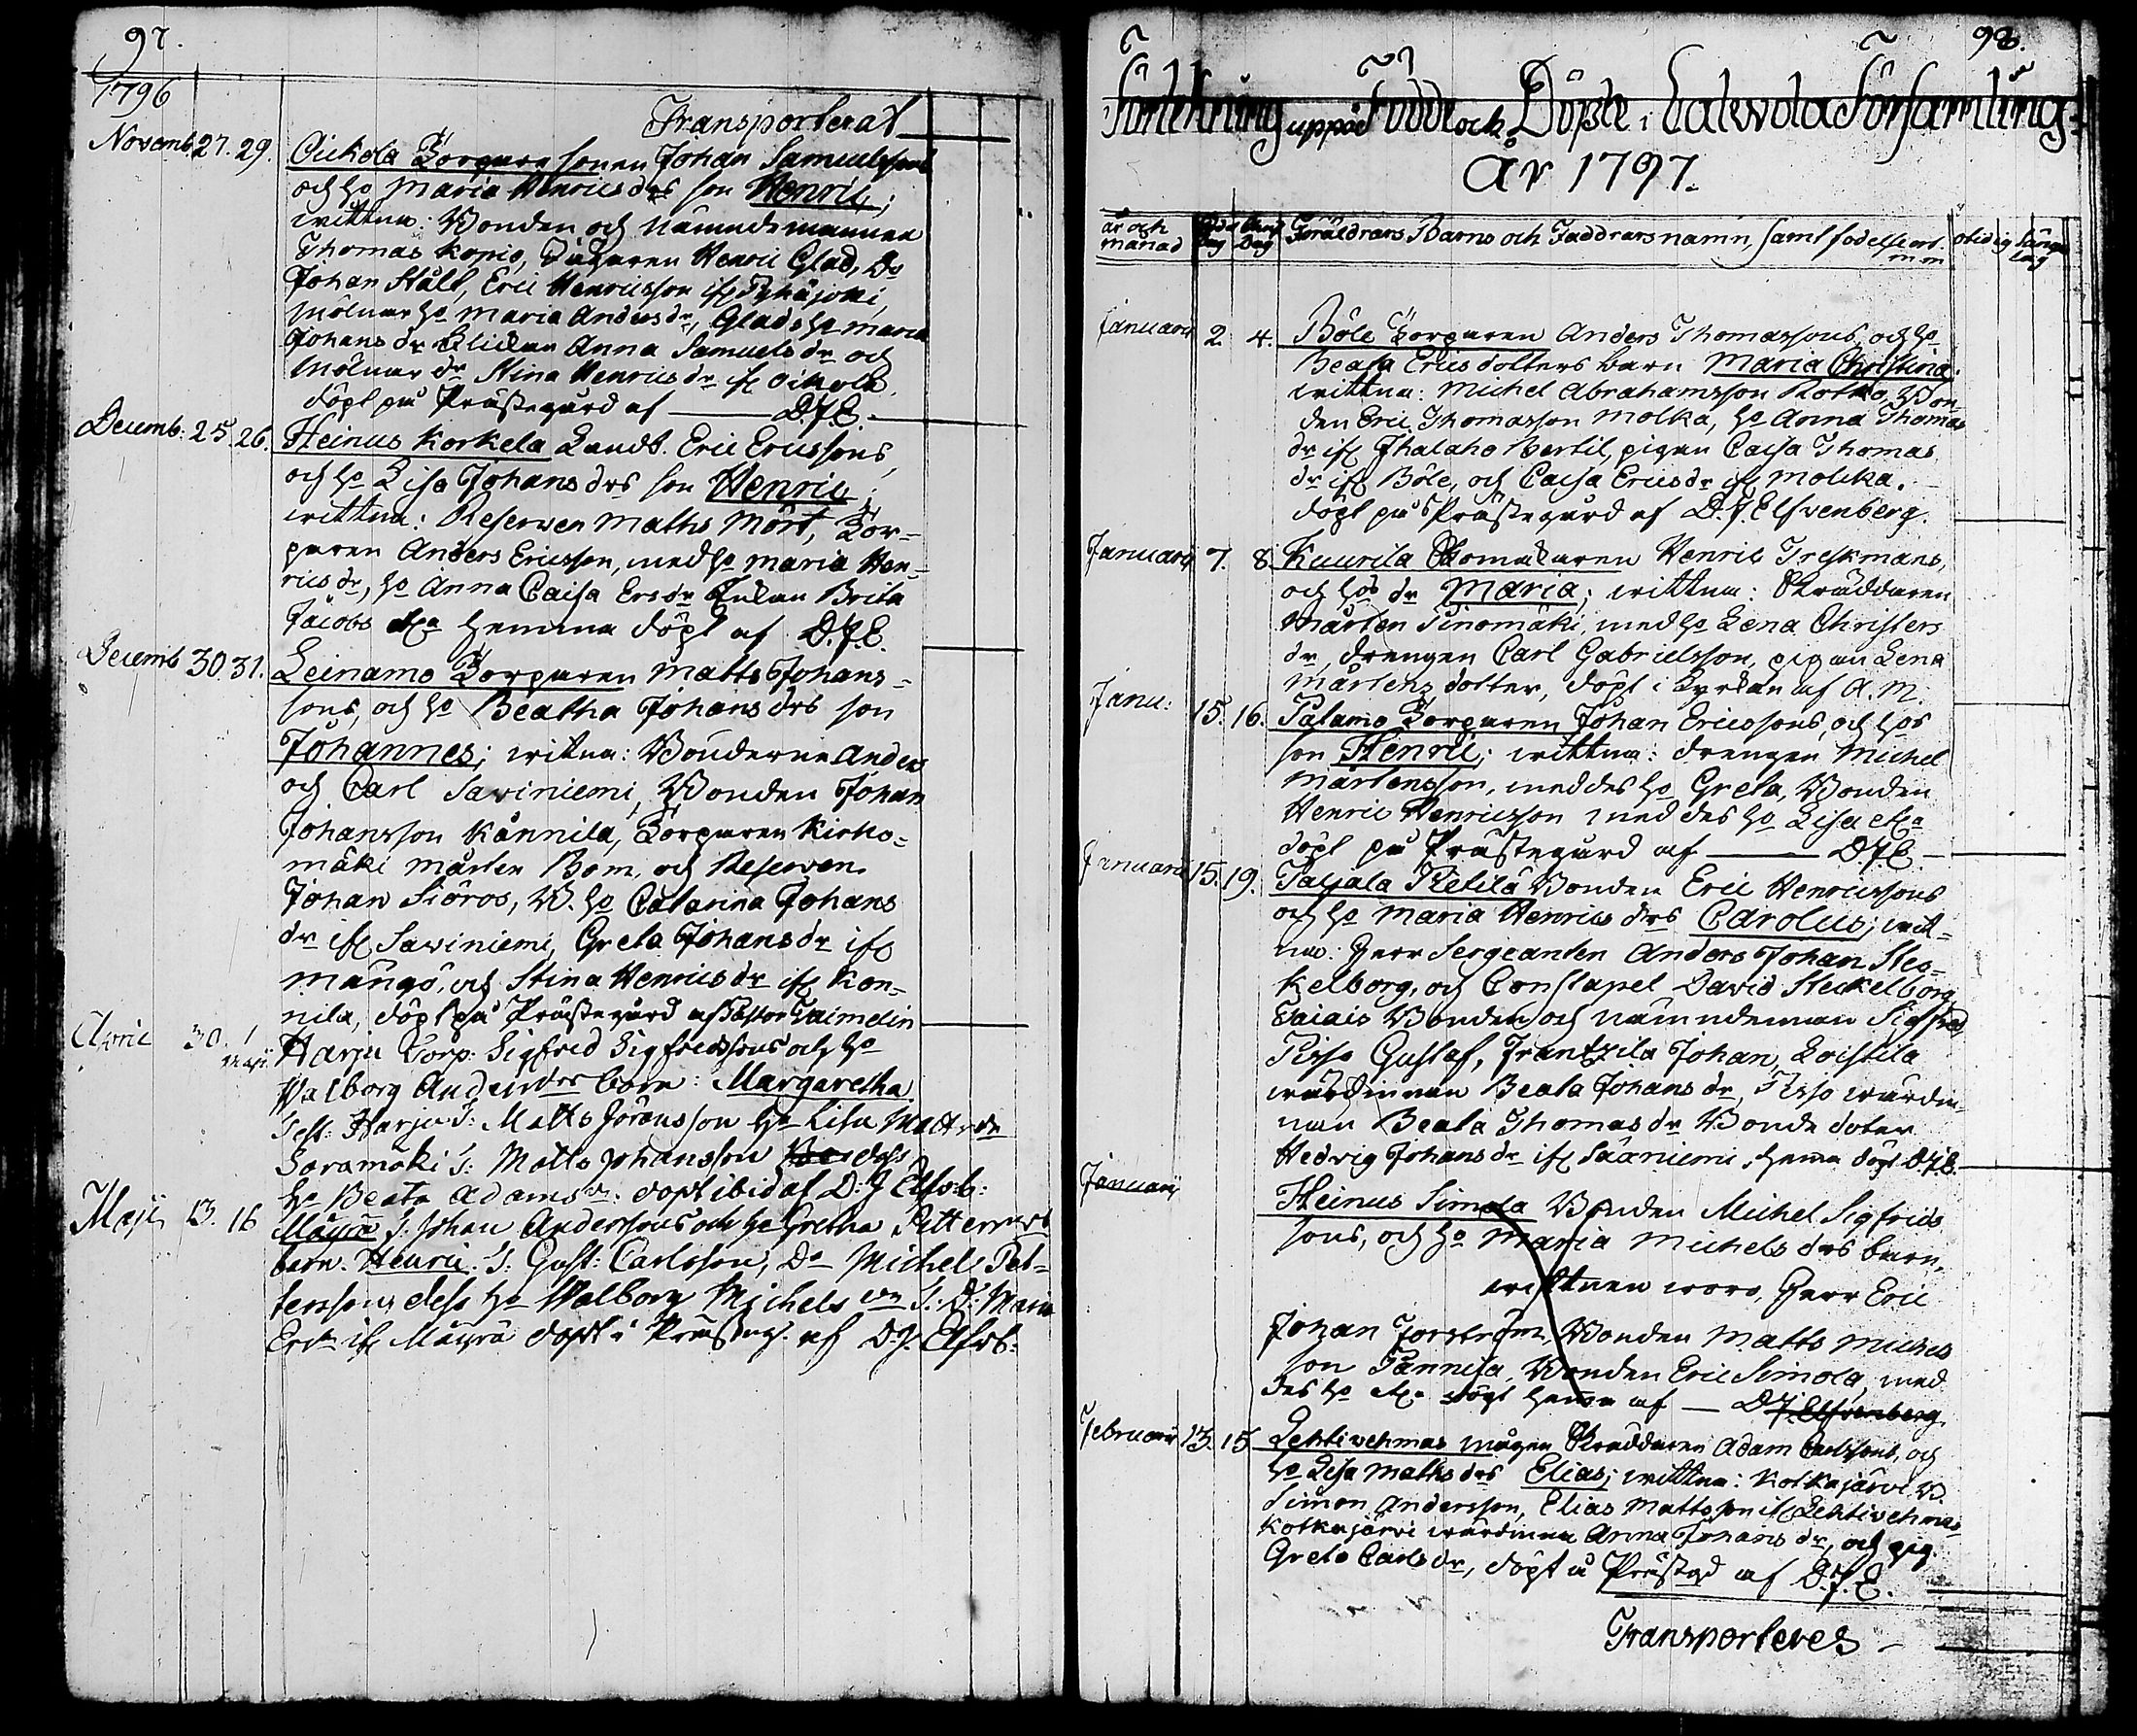 97.
1796
Transporterat
Novemb. 27. 29. Oickola Torparesonen Johan Samuelssons
och ho Maria Henricsdrs son Henric;
wittna: Bonden och Nämndemannen
Thomas Kopio, Henric Glad, Do
Johan Stålt, Eric Henricsson if
Mölnar ho Maria Andersdr, Glads ho Maria
Johansdr Anna Samuelsdr och
Mölnar dr Stina Henricsdr if Oikola
döpt på Prästegård af — D.J.E.
Decemb: 25. 26. Heinus Korkela Landb. Eric Ericssons
och ho Lisa Johansdrs son Henric;
wittna: Reserven Matts Mört, Tor-
paren Anders Ericsson, med ho Maria Hen-
ricsdr, ho Anna Caisa Ersdr Brita
Jacobs hemma döpt af D.J.E.
Decemb 30. 31. Leinamo Torparen Matts Johans-
sons, och ho Beatha Johansdrs son
Johannes; witna: Bönderne Anders
och Carl Saviniemi, Bonden Johan
Johansson Kånnila, Torparen Kirko-
mäki Mårten Bom, och Reserven
Johan Siöros, B. ho Catarina Johans
dr if Saviniemi, Greta Johansdr if
och Stina Henricsdr if Kon-
nila, döpt på Prästegård af Pastor Taimelin
April 30. 1 Maji. Harju Torp: Sigfred Sigfredssons och ho
Walborg Andersdrs barn: Margaretha
Test: Harju T: Matts Göransson ho Lisa Mattsdr
Saramäki T: Matts Johansson dess
ho Beata Adamsdr. döpt ibid af D: J Elfvb:
Maji 13. 16 Mäyrä T: Johan Anderssons och ho Gretha Pettersdrs
barn. Henric. T: Gust: Carlsson, Do Michel Pet-
tersson dess ho Walborg Michelsdr T: D: Maria
Ersdr if Mäyrä döpt i Prästug. af D.J. Elfvb:
98.
Förtekning uppå Födde och Döpte i Calvola Församling
År 1797.
år och månad
Föd. Dag
Christ. Dag
Föräldrars Barns och Faddrars namn, samt födelseort. m m
otidig
Januarii 2. 4. Böle Torparen Anders Thomassons, och ho
Beata Ericsdotters barn Maria Christina.
wittna: Michel Abrahamsson Rotko, Bon-
den Eric Thomasson Molka, ho Anna Thomas
dr if Ihalaho Bertil, pigan Caisa Thomas
dr if Böle, och Caisa Ericsdr if Molka.
döpt på Prästegård af D.J. Elfvenberg.
Januarii 7. 8. Kuurila Henric Treskmans,
och hos dr Maria; wittna: Skräddaren
Mårten Sinomäki, med ho Lena Christers
dr, drengen Carl Gabrielsson, pigan Lena
Mårtens dotter, döpt i Kyrkan af A. M.
Janu: 15. 16. Palamo Torparen Johan Ericssons, och hos
son Henric; wittna: drengen Michel
Mårtensson, med des ho Greta, Bonden
Henric Henricsson med des ho Lisa
döpt på Prästegård af — D.J.E.
Januarii 15. 19. Taljala Retilä Bonden Eric Henricssons
och ho Maria Henricsdrs Carolus; wit-
na: Herr Sergeanten Anders Johan Stec-
kelborg, och Constapel David Steckelborg
Bonden och Nämndeman Sigfred
Pisso Gustaf, Frantzila Johan, Loistila
wärdinnan Beata Johansdr, Pisso wärdin-
nan Beata Thomasdr Bonde doter
Hedvig Johansdr if Sääniemi, hemma döpt D.J.E.
Januarii
Heinus Simola Bonden Michel Sigfrids
sons, och ho Maria Michelsdrs barn,
wittnen woro, Herr Eric
Johan Forström, Bonden Matts Michels
son Pannila, Bonden Eric Simola, med
des ho döpt hemma af — D.J. Elfvenberg.
Februarii 13. 15. Lehtivehmas mågen Skräddaren Adam Carlssons, och
ho Lisa Mattsdrs Elias; wittna: Kotkajärvi B.
Simon Andersson, Elias Mattsson if Lehtivehmas
Kotkajärvi wärdinna Anna Johansdr, och pig.
Greta Carlsdr, döpt å Prästgd af D.J.E.
Transporteres